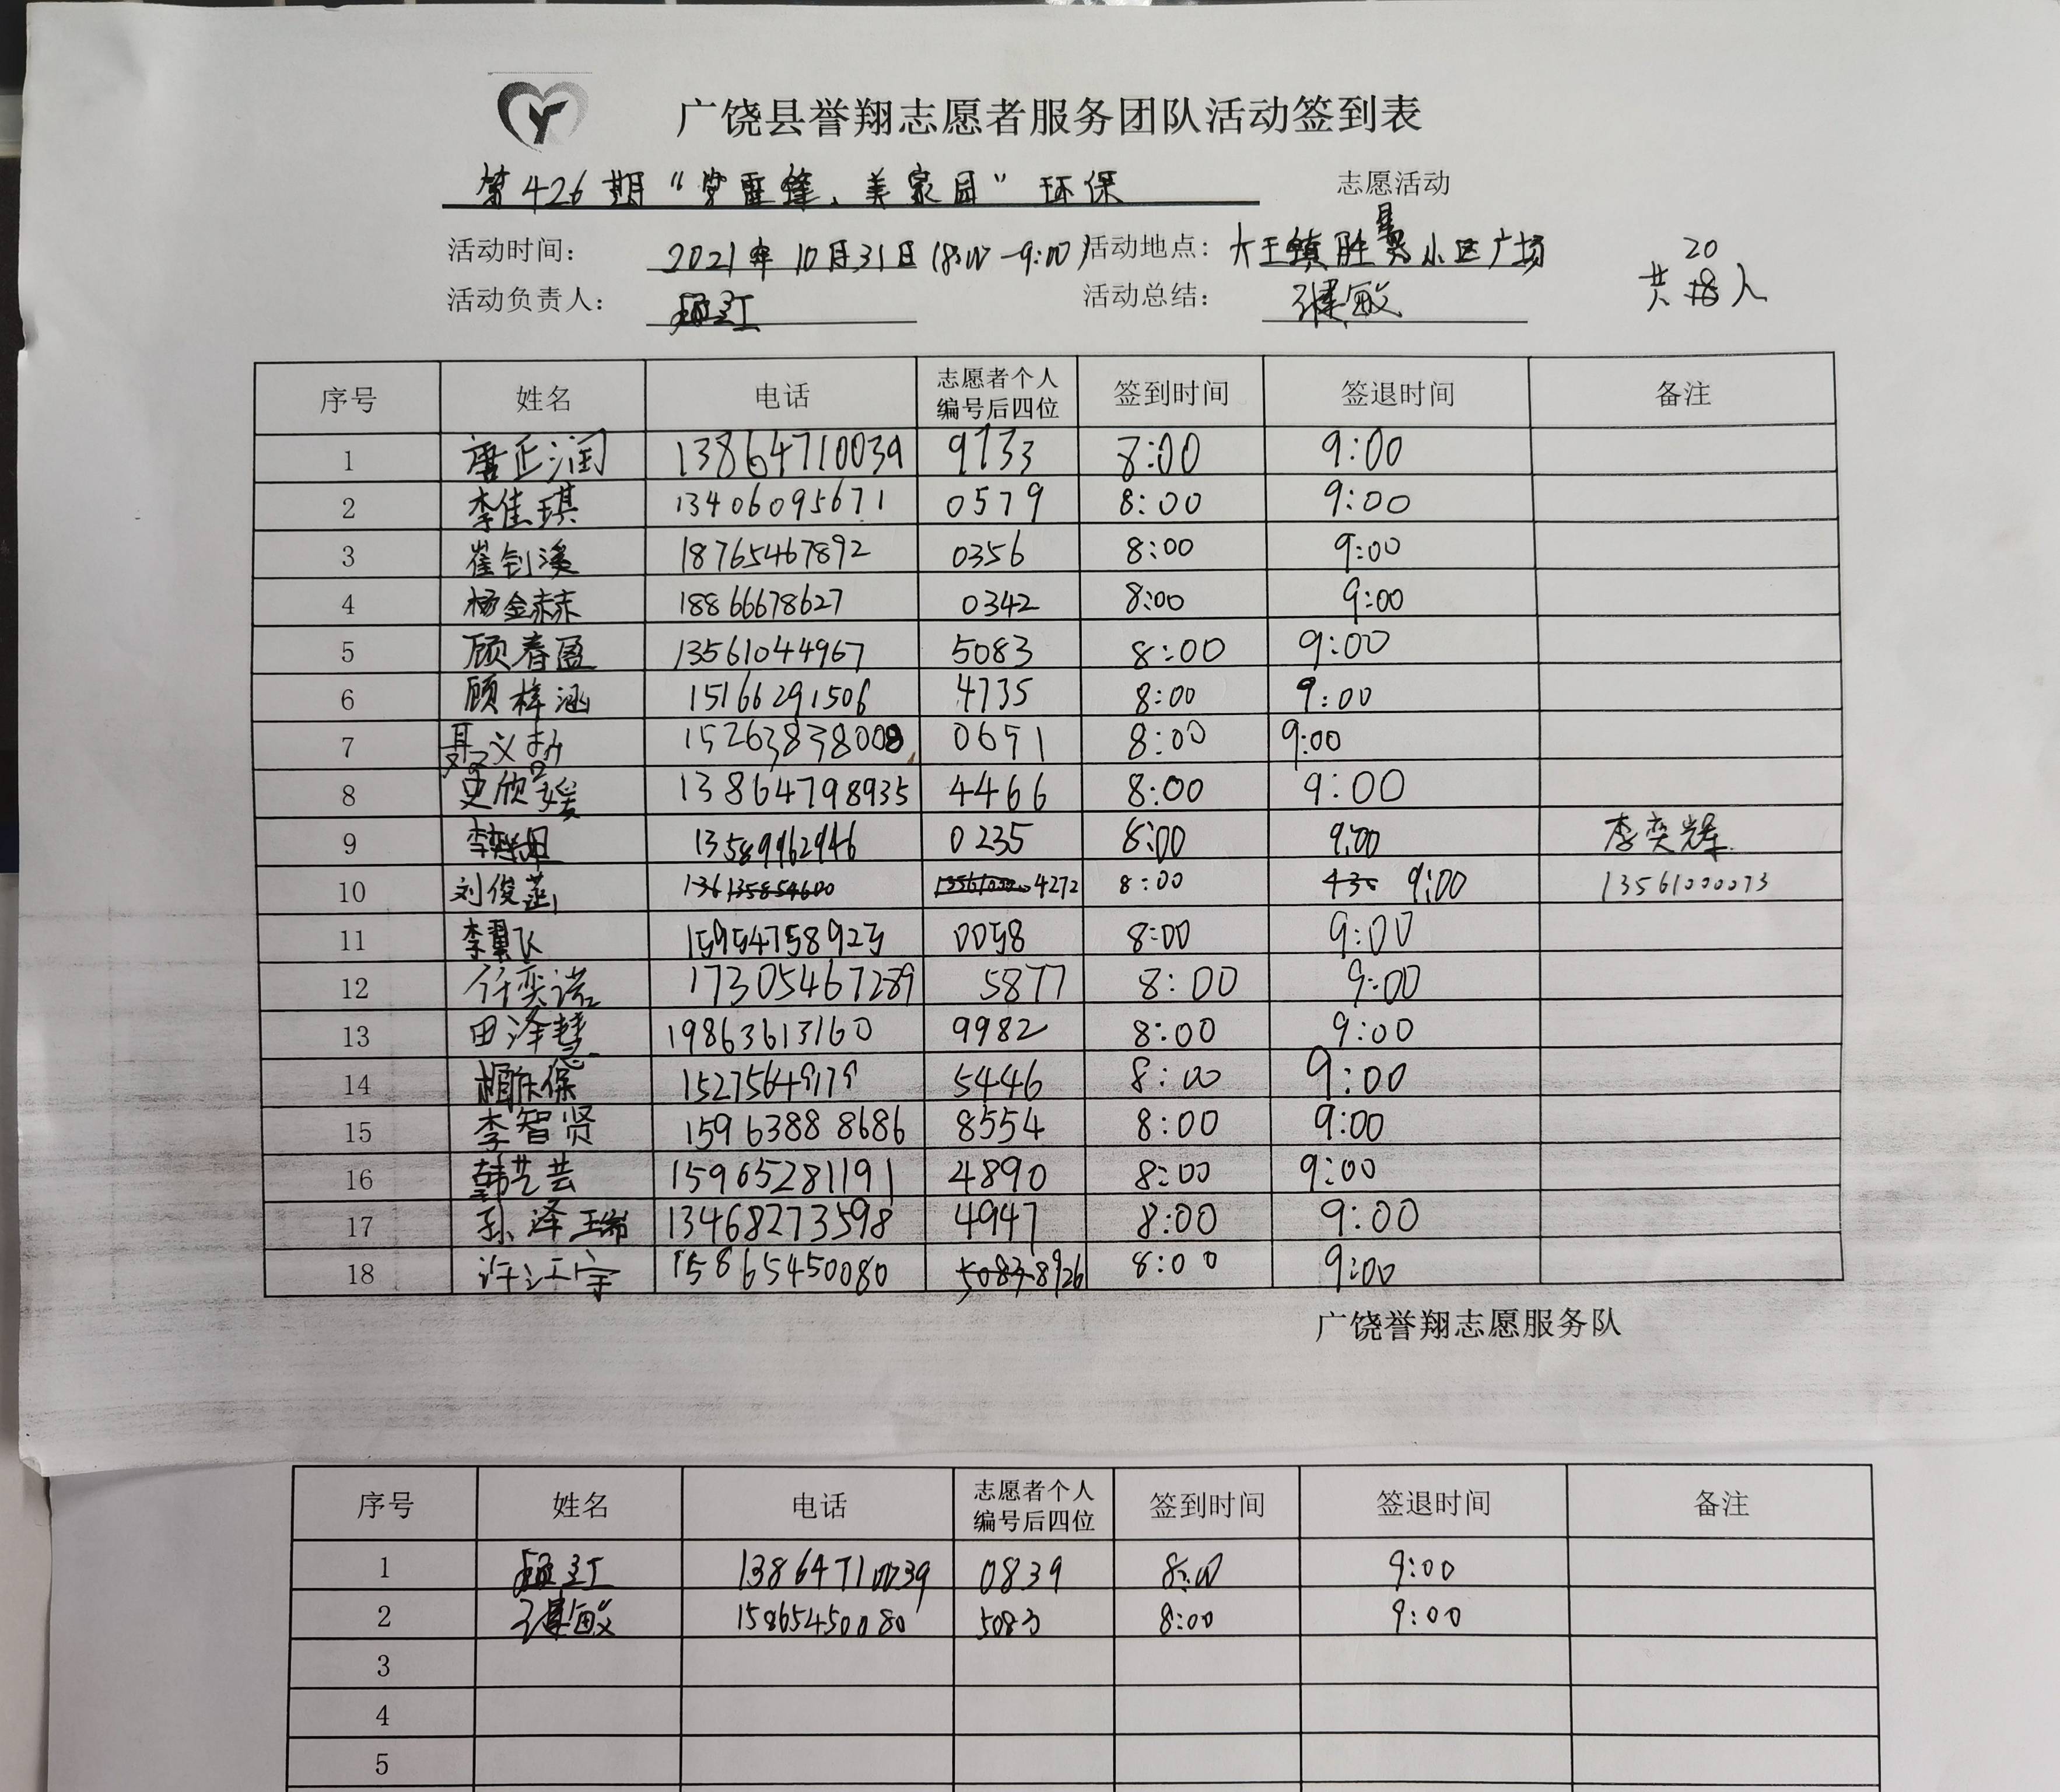 广饶县誉翔志愿者服务团队活动签到表
第426期“学雷锋、美家园”环保 志愿活动
活动时间: 2021年10月31日(8:00-9:00) 活动地点: 大王镇胜 小区广场 20
活动负责人: 活动总结: 共18人
序号 姓名 电话 志愿者个人编号后四位 签到时间 签退时间 备注
1 唐正润 13864710039 9733 8:00 9:00
2 李佳琪 13406095671 0579 8:00 9:00
3 崔钊溪 18765467892 0356 8:00 9:00
4 杨金赫 18866678627 0342 8:00 9:00
5 顾春盈 13561044967 5083 8:00 9:00
6 顾梓涵 15166291506 4735 8:00 9:00
7 聂义 15263838008 0651 8:00 9:00
8 史欣媛 13864798935 4466 8:00 9:00
9 13589962946 0235 8:00 9:00 李奕辉
10 刘俊 4272 8:00 9:00 13561000073
11 李翼飞 15954758923 0058 8:00 9:00
12 任奕诺 17305467289 5877 8:00 9:00
13 田泽慧 19863613160 9982 8:00 9:00
14 15275649179 5446 8:00 9:00
15 李智贤 15963888686 8554 8:00 9:00
16 韩艺芸 15965281191 4890 8:00 9:00
17 孙泽瑞 13468273598 4947 8:00 9:00
18 许江宇 15865450080 8926 8:00 9:00
广饶誉翔志愿服务队
序号 姓名 电话 志愿者个人编号后四位 签到时间 签退时间 备注
1 13864710039 0839 8:00 9:00
2 15865450080 5083 8:00 9:00
3
4
5